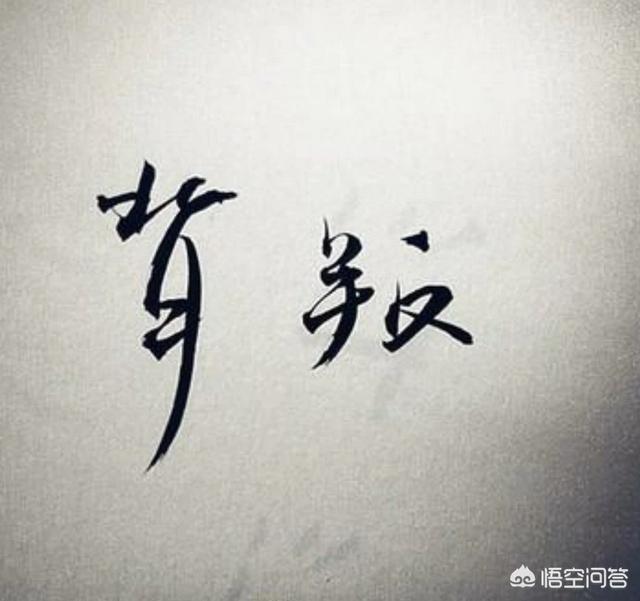 背叛
悟空问答